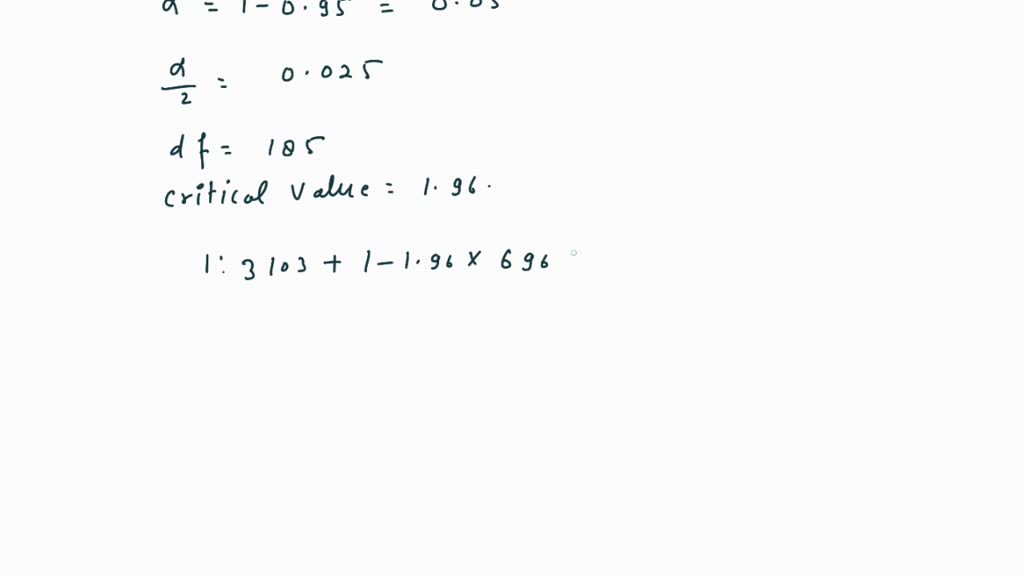 α = 1 - 0.95 = 0.05
α/2 = 0.025
df = 185
critical value = 1.96.
1: 3103 + 1 - 1.96 x 696